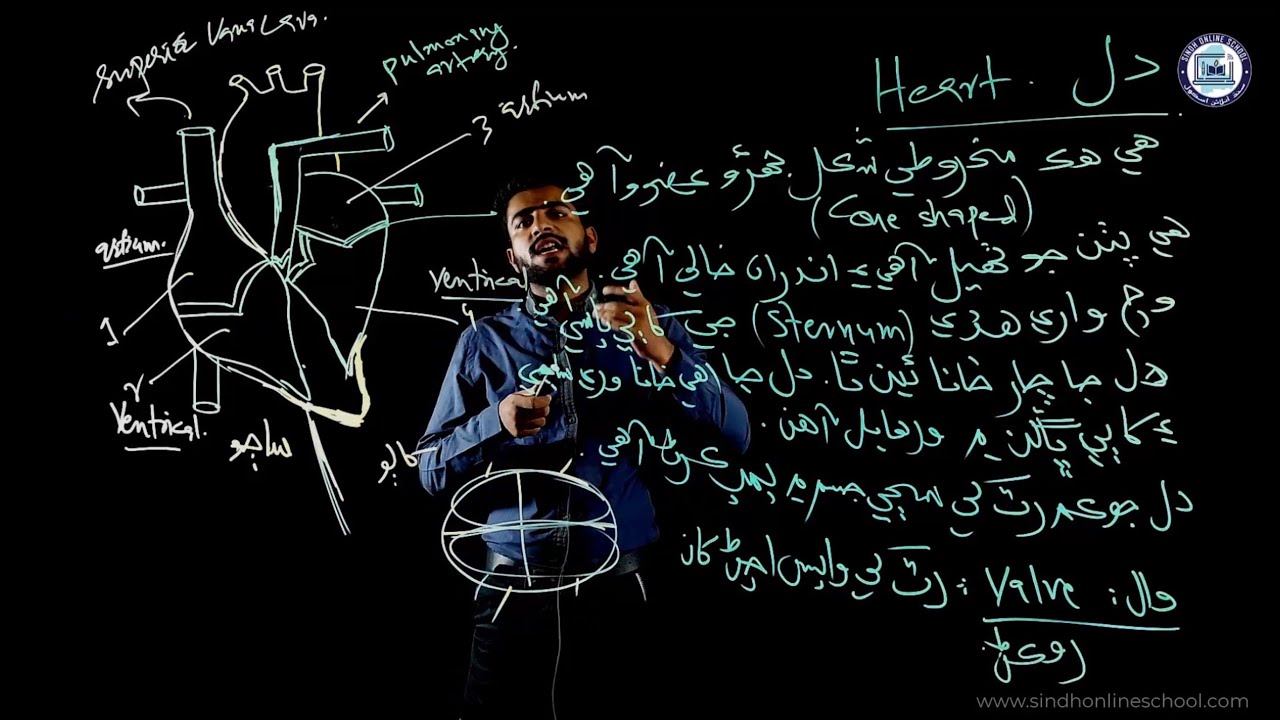 Heart. دل
هي هڪ مخروطي شڪل جھڙو عضوو آهي.
(Cone shaped)
هي پٺن جو ٺهيل آهي ۽ اندران خالي آهي.
وچ واري هڏي (Sternum) جي کاٻي پاسي آهي
دل جا چار خانا ٿين ٿا. دل جا (هي خانا وري ساڄي
۽ کاٻي ڀاڱن ۾ ورهايل آهن.
دل جو ڪم رت کي سڄي جسم ۾ پمپ ڪرڻ آهي.
وال: Valve : رت کي واپس اچڻ کان
روڪڻ
Vana Cava.
pulmonary
artery.
3 atrium
atrium.
1
ventrical
4
2
Ventrical.
ساڄو
کاٻو
SINDH ONLINE SCHOOL
سنڌ آنلائين اسڪول
www.sindhonlineschool.com